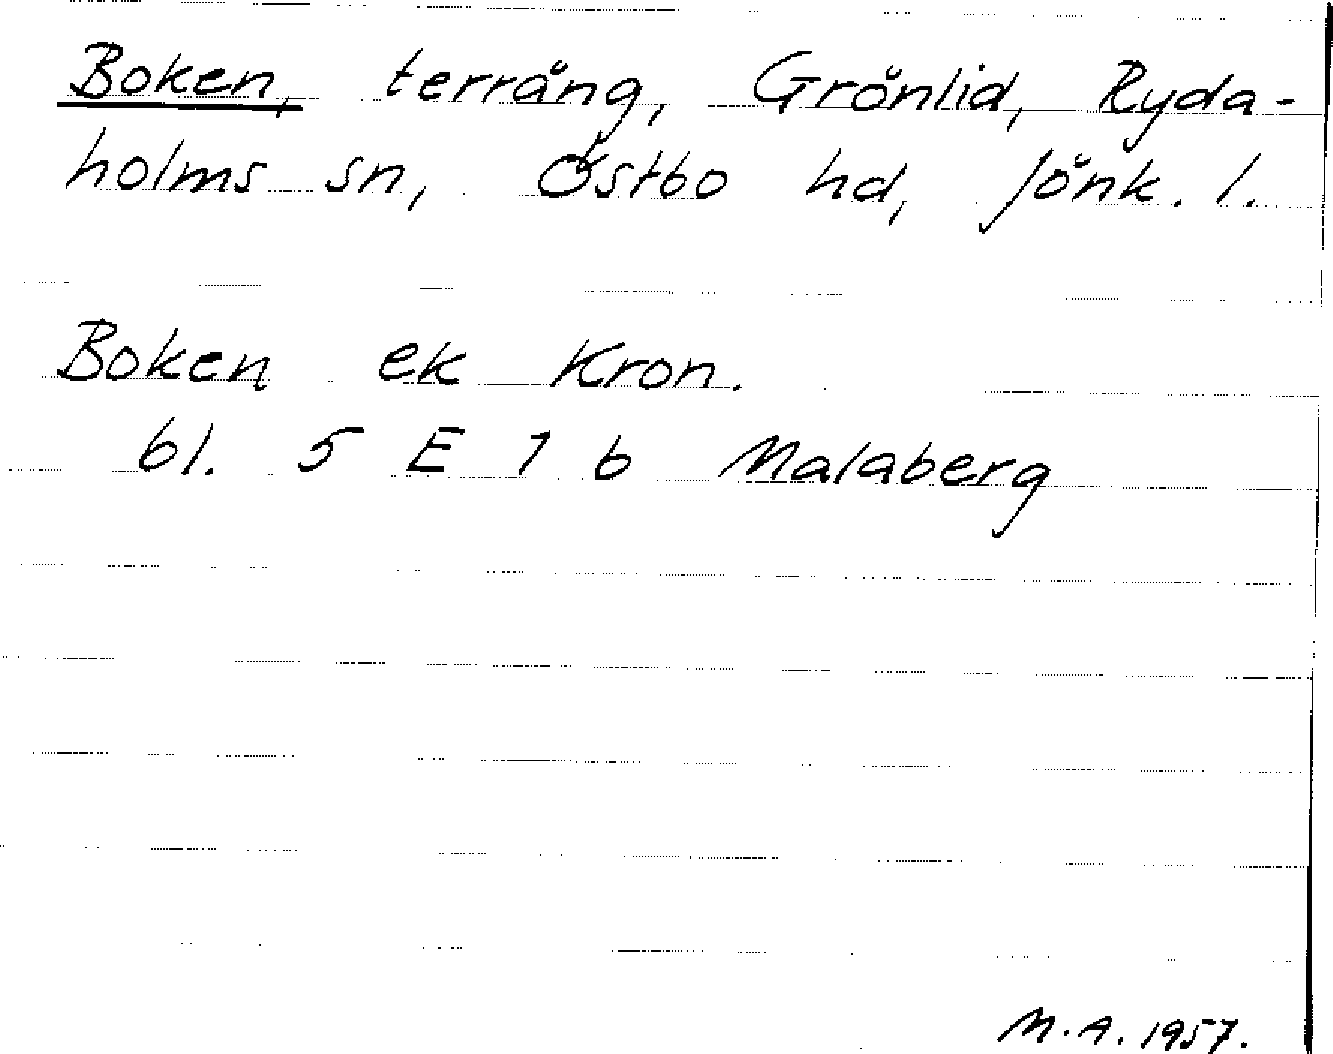 Boken, terräng, Grönlid, Ryda-
holms sn, Östbo hd, Jönk. l.
Boken ek Kron.
bl. 5 E 1 b Malaberg
M.A. 1957.